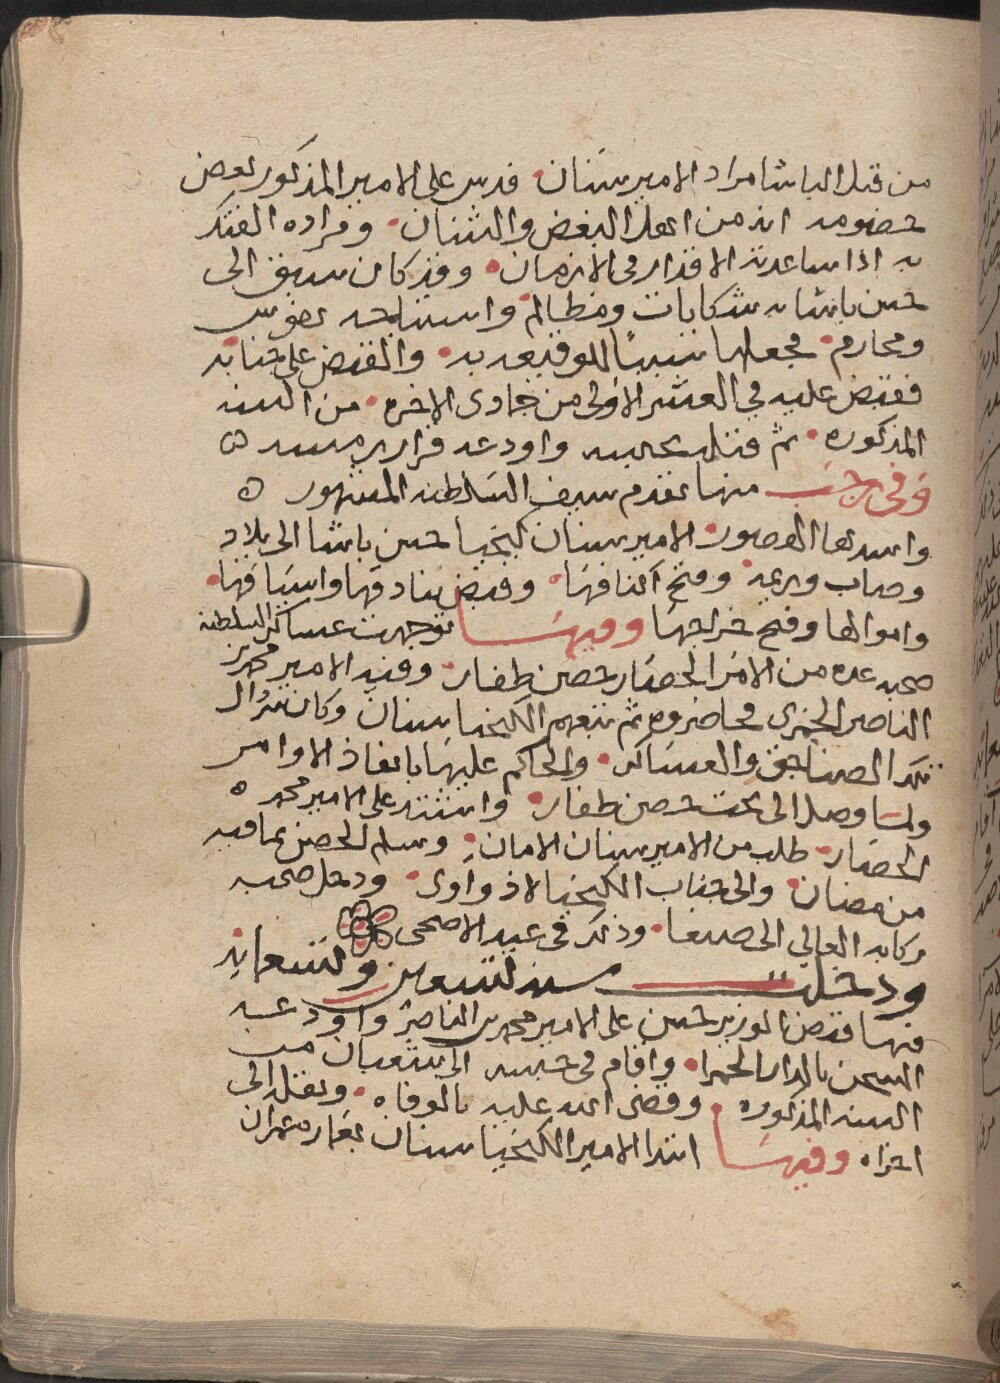 من قبل الباشا مراد الامير سنان فدس على الامير المذكور بعض
خصومه انه من اهل البغض والشنان ومراده الفتك
به اذا ساعدته الاقدار فى الازمان وقد كان سبق الى
حسن باشا به شكايات ومظالم واستباحه نفوس
ومحارم فجعلها سببًا للوقيعه به والقبض على جنابه
فقبض عليه في العشر الاولى من جمادى الاخره من السنه
المذكوره ثم قتل بحبسه واودعه قرار رمسه
وفى رجب منها تقدم سيف السلطنه المشهور
واسدها الهصور الامير سنان كيخيا حسن باشا الى بلاد
وصاب وريمه وفتح اكنافها وقبض بنادقها واسيافها
واموالها وفتح خراجها وفيها توجهت عساكر السلطنه
صحبه عده من الامرا لحصار حصن ظفار وفيه الامير محمد بن
الناصر الحمزى فحاصروه ثم تبعهم الكيخيا سنان وكان سردال
تلك الصناجق والعساكر والحاكم عليها بانفاذ الاوامر
ولما وصل الى تحت حصن ظفار واشتد على الامير محمد
الحصار طلب من الامير سنان الامان وسلم الحصن بما فيه
من والى جناب الكيخيا لاذ واوى ودخل صحبه
ركابه العالي الى صنعا وذلك فى عيد الاضحى
ودخلت سنه تسعين وتسعمايه
فيها قبض الوزير حسن على الامير محمد بن الناصر واودعه
السجن بالدار الحمرا واقام فى حبسه الى شعبان من
السنه المذكوره وقضى الله عليه بالوفاه ونقله الى
اخراه وفيها ابتدا الامير الكيخيا سنان بعماره عمران